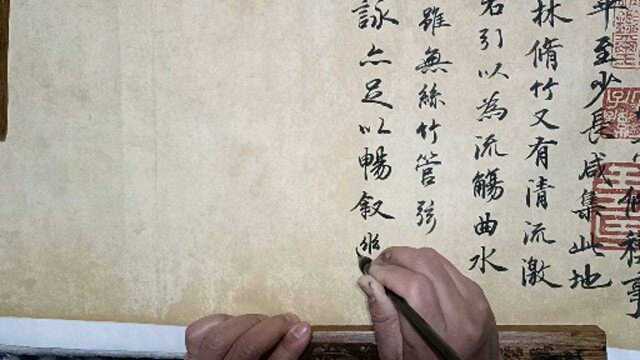 脩稧事
畢至少長咸集此地
林脩竹又有清流激
右引以為流觴曲水
雖無絲竹管弦
詠亦足以暢叙